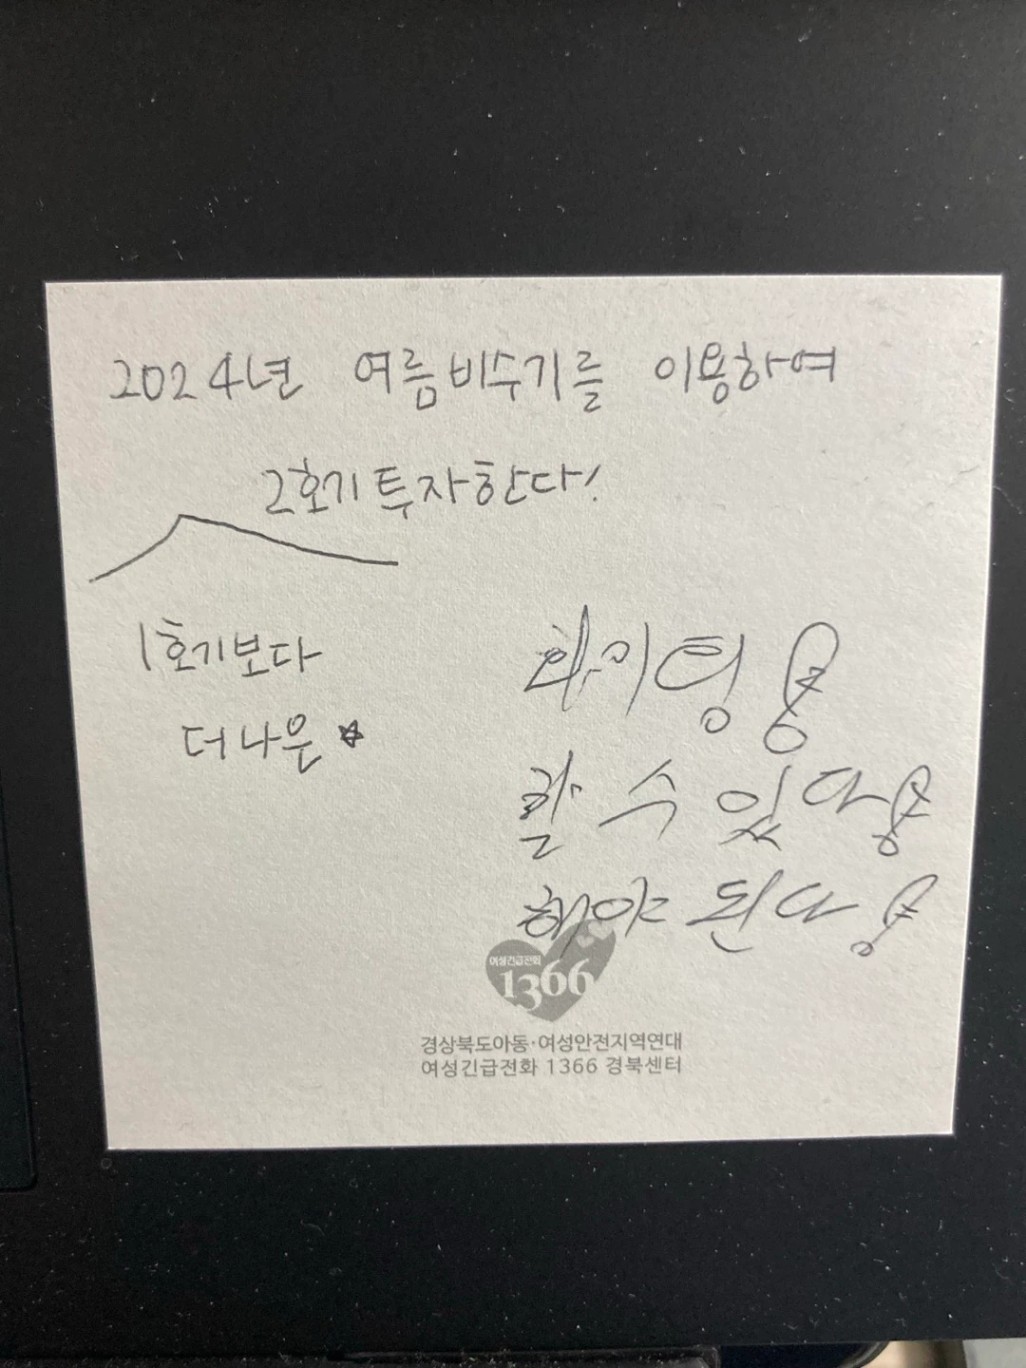 2024년 여름비수기를 이용하여
2호기투자한다!
1호기보다
더나은
화이팅
할 수 있다
해야 된다
여성긴급전화
1366
경상북도아동·여성안전지역연대
여성긴급전화 1366 경북센터